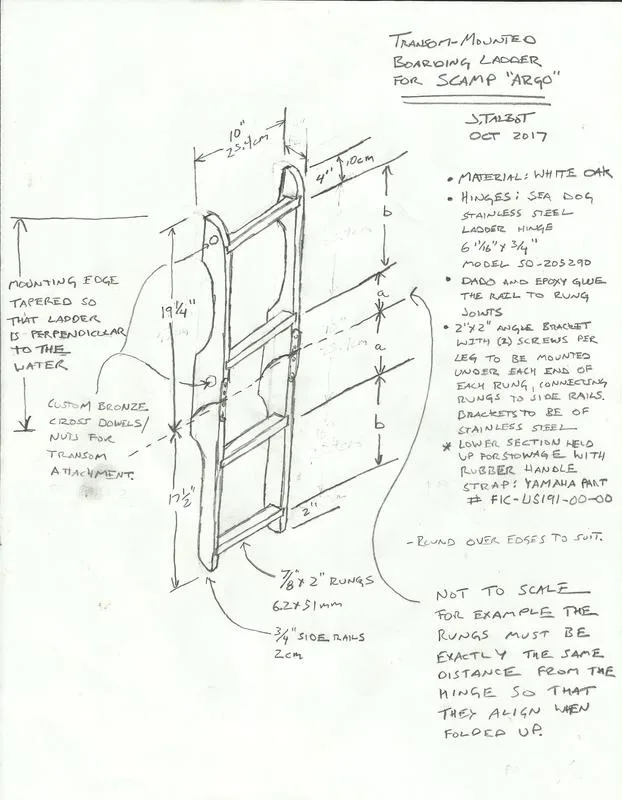 TRANSOM-MOUNTED
BOARDING LADDER
FOR SCAMP "ARGO"
J.TALBOT
OCT 2017
10"
25.4cm
4"
10cm
b
a
a
b
19 1/4"
17 1/2"
2"
MOUNTING EDGE
TAPERED SO
THAT LADDER
IS PERPENDICULAR
TO THE
WATER
CUSTOM BRONZE
CROSS DOWELS/
NUTS FOR
TRANSOM
ATTACHMENT.
7/8" x 2" RUNGS
6.2 x 51mm
3/4" SIDE RAILS
2cm
• MATERIAL: WHITE OAK
• HINGES: SEA DOG
STAINLESS STEEL
LADDER HINGE
6 1/16" x 3/4"
MODEL SD-205290
• DADO AND EPOXY GLUE
THE RAIL TO RUNG
JOINTS
• 2"x2" ANGLE BRACKET
WITH (2) SCREWS PER
LEG TO BE MOUNTED
UNDER EACH END OF
EACH RUNG, CONNECTING
RUNGS TO SIDE RAILS.
BRACKETS TO BE OF
STAINLESS STEEL
* LOWER SECTION HELD
UP FOR STOWAGE WITH
RUBBER HANDLE
STRAP: YAMAHA PART
# F1C-U5191-00-00
- ROUND OVER EDGES TO SUIT.
NOT TO SCALE
FOR EXAMPLE THE
RUNGS MUST BE
EXACTLY THE SAME
DISTANCE FROM THE
HINGE SO THAT
THEY ALIGN WHEN
FOLDED UP.